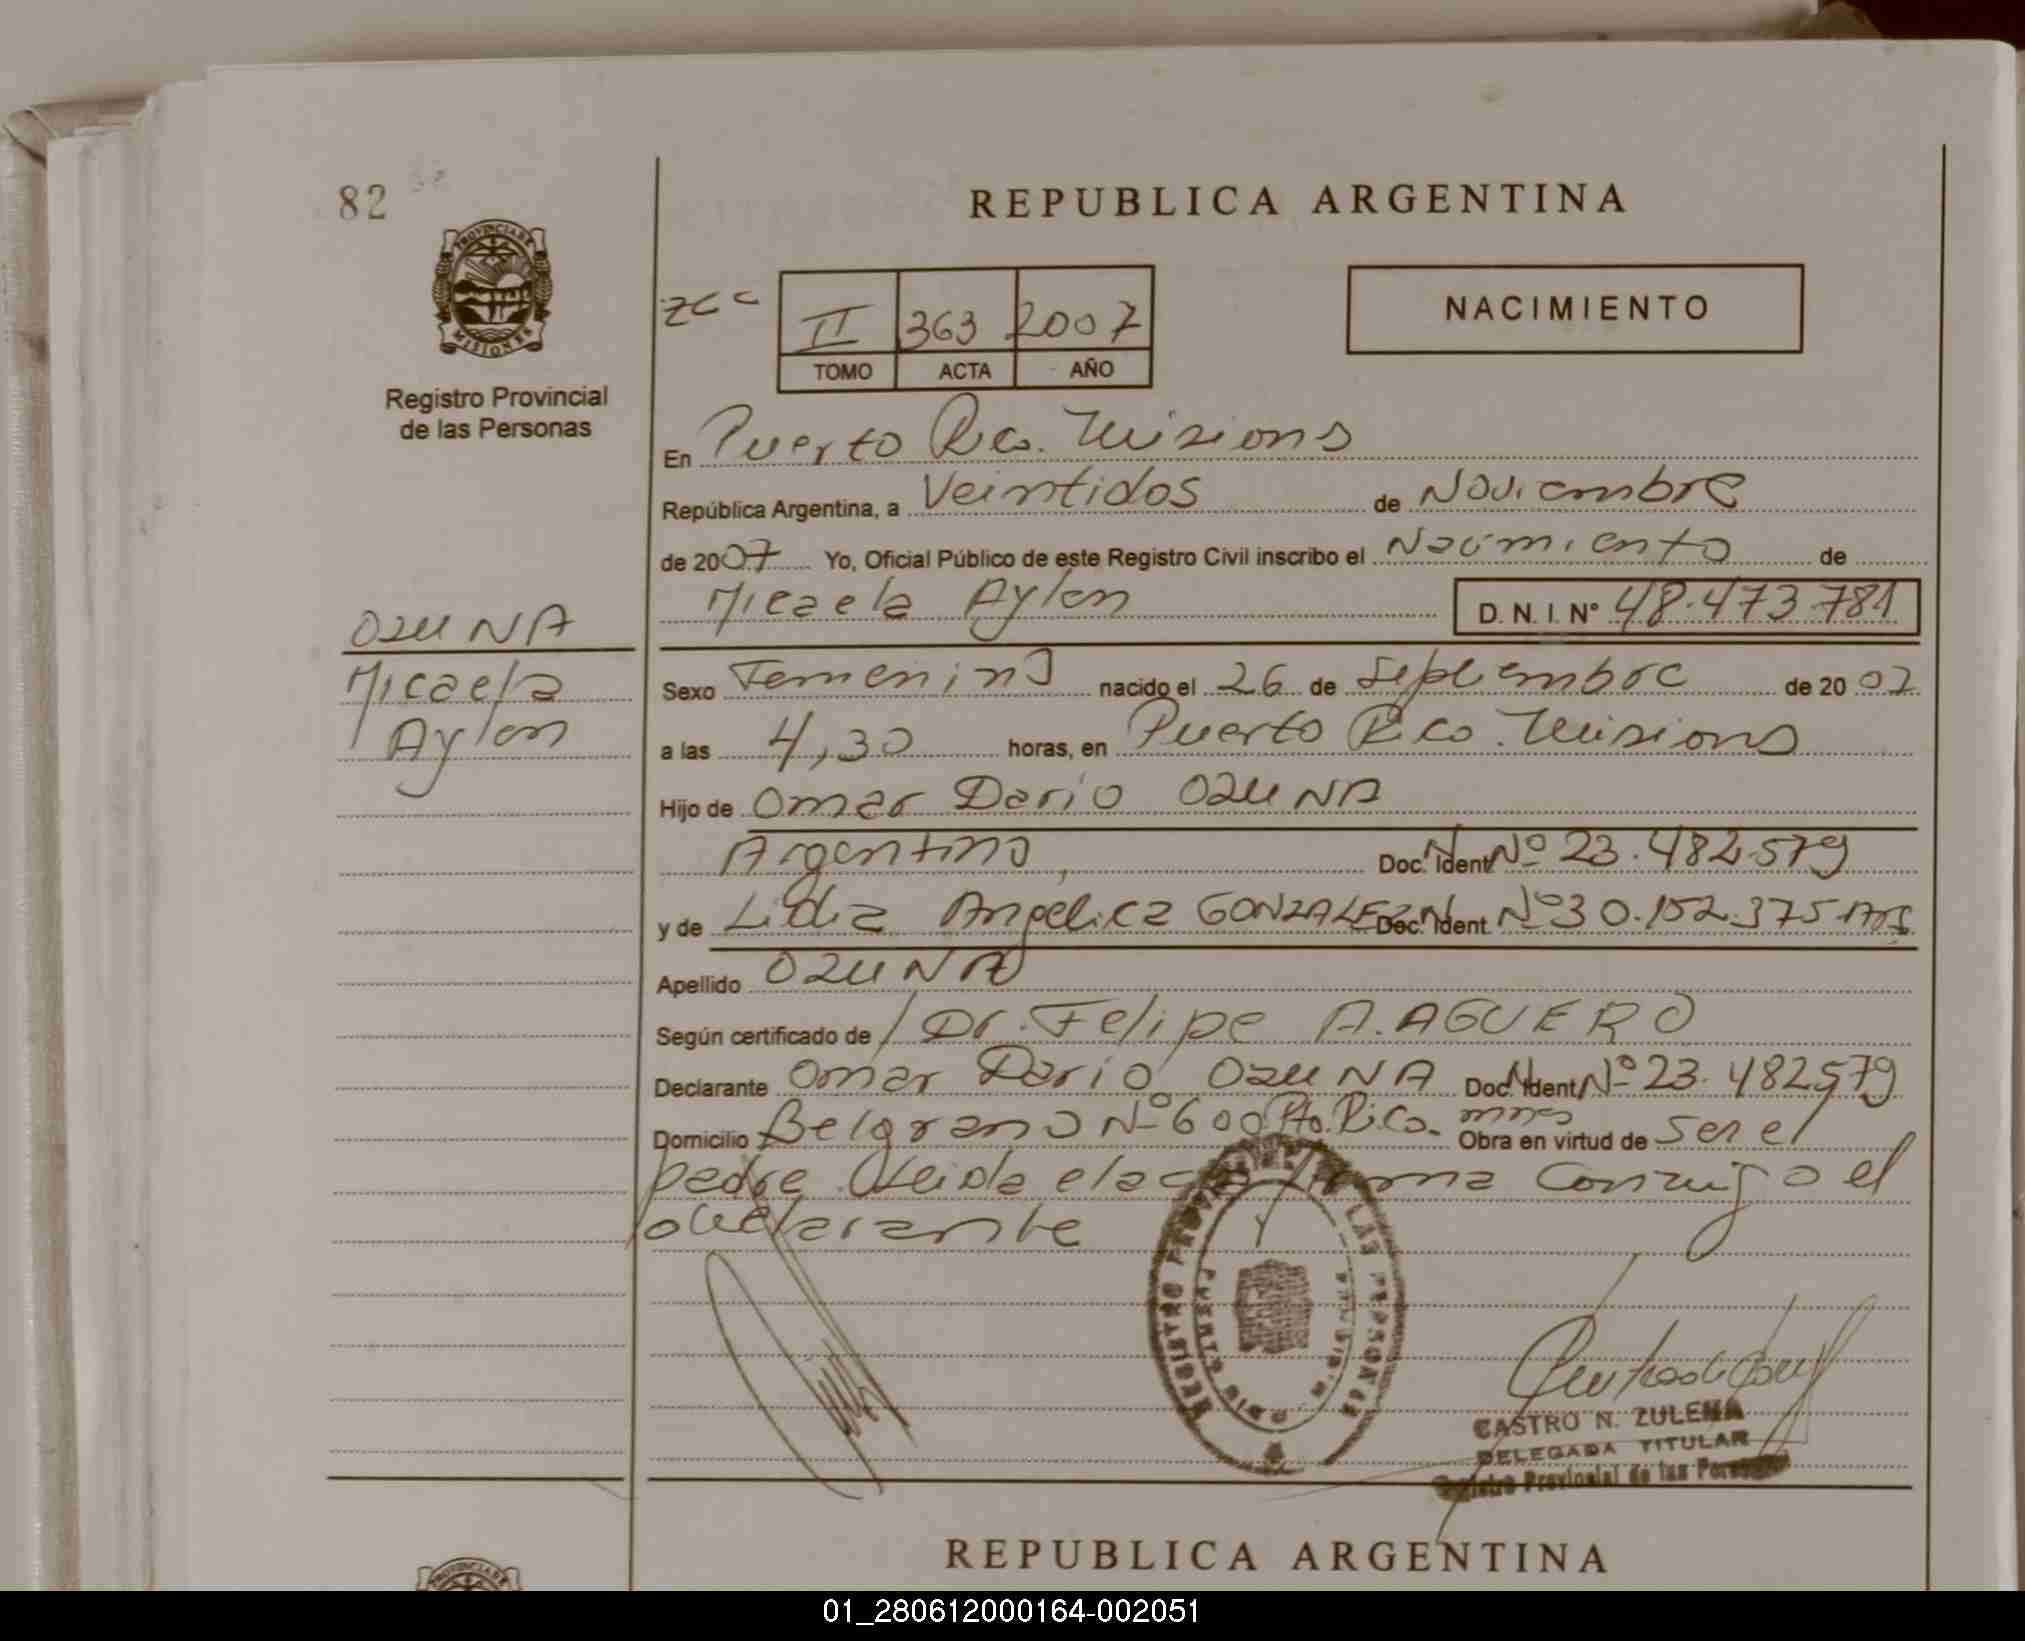 82
PROVINCIA DE
MISIONES
Registro Provincial
de las Personas
OZUNA
Micaela
Aylen
REPUBLICA ARGENTINA
II 363 2007
TOMO ACTA AÑO
NACIMIENTO
En Puerto Rico. Misiones
República Argentina, a Veintidos de Noviembre
de 2007 Yo, Oficial Público de este Registro Civil inscribo el Nacimiento de
Micaela Aylen D. N. I. Nº 48.473.781
Sexo Femenino nacido el 26 de Septiembre de 2007
a las 4,30 horas, en Puerto Rico. Misiones
Hijo de Omar Dario OZUNA
Argentino, Doc. Ident. Nº 23.482.579
y de Lidia Angelica GONZALEZ Doc. Ident. Nº 30.152.375 Arg
Apellido OZUNA
Según certificado de Dr. Felipe A. AGUERO
Declarante Omar Dario OZUNA Doc. Ident. Nº 23.482579
Domicilio Belgrano Nº 600 Pto. Rico. mnes Obra en virtud de ser el
padre. Leida el acta firma conmigo el
declarante
REGISTRO PROVINCIAL DE LAS PERSONAS
PUERTO RICO
CASTRO N. ZULEMA
DELEGADA TITULAR
Registro Provincial de las Personas
REPUBLICA ARGENTINA
PROVINCIA DE
01_280612000164-002051